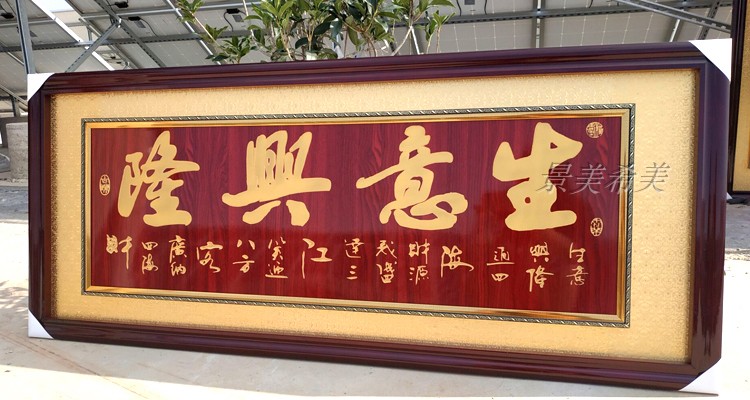 生意興隆
生意興隆通四海財源茂盛達三江笑迎八方客廣納四海財
景美希美